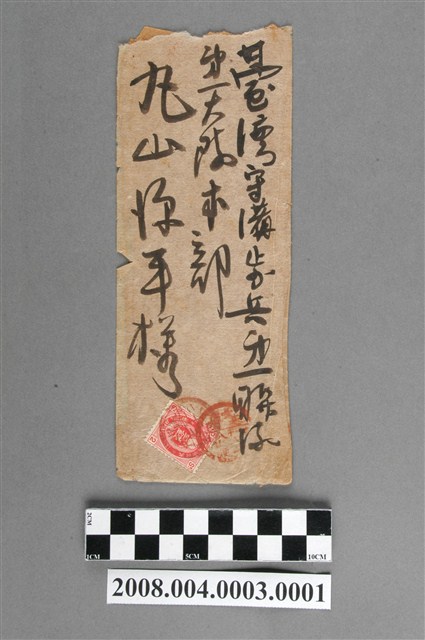 臺灣守備歩兵第一聯隊
第一大隊本部
丸山弥平様
2CM
1CM
5CM
10CM
2008.004.0003.0001